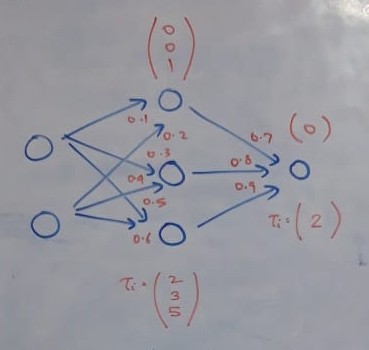 (0
0
1)
0.1
0.2
0.3
0.4
0.5
0.6
0.7
0.8
0.9
(0)
τi = (2)
τi = (2
3
5)